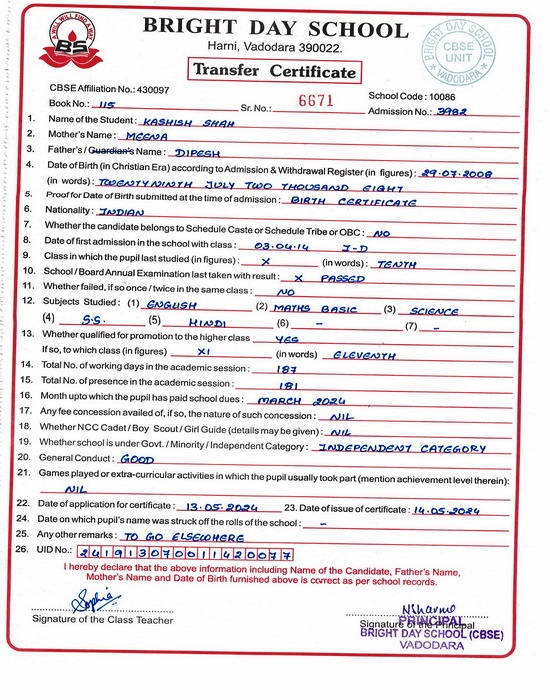 A WILL WILL FIND A WAY
BS
BRIGHT DAY SCHOOL
Harni, Vadodara 390022.
BRIGHT DAY SCHOOL
CBSE
UNIT
VADODARA
Transfer Certificate
CBSE Affiliation No.: 430097
School Code : 10086
Book No.: 115
Sr. No.: 6671
Admission No.: 3982
1. Name of the Student : KASHISH SHAH
2. Mother's Name : MEENA
3. Father's / Guardian's Name : DIPESH
4. Date of Birth (in Christian Era) according to Admission & Withdrawal Register (in figures) : 29.07.2008
(in words) : TWENTYNINTH JULY TWO THOUSAND EIGHT
5. Proof for Date of Birth submitted at the time of admission : BIRTH CERTIFICATE
6. Nationality : INDIAN
7. Whether the candidate belongs to Schedule Caste or Schedule Tribe or OBC : NO
8. Date of first admission in the school with class : 03.04.14 I-D
9. Class in which the pupil last studied (in figures) : X (in words) : TENTH
10. School / Board Annual Examination last taken with result : X PASSED
11. Whether failed, if so once / twice in the same class : NO
12. Subjects Studied : (1) ENGLISH (2) MATHS BASIC (3) SCIENCE
(4) S.S. (5) HINDI (6) - (7) -
13. Whether qualified for promotion to the higher class YES
If so, to which class (in figures) XI (in words) ELEVENTH
14. Total No. of working days in the academic session : 187
15. Total No. of presence in the academic session : 181
16. Month upto which the pupil has paid school dues : MARCH 2024
17. Any fee concession availed of, if so, the nature of such concession : NIL
18. Whether NCC Cadet / Boy Scout / Girl Guide (details may be given) : NIL
19. Whether school is under Govt. / Minority / Independent Category : INDEPENDENT CATEGORY
20. General Conduct : GOOD
21. Games played or extra-curricular activities in which the pupil usually took part (mention achievement level therein):
NIL
22. Date of application for certificate : 13.05.2024 23. Date of issue of certificate : 14.05.2024
24. Date on which pupil's name was struck off the rolls of the school : -
25. Any other remarks : TO GO ELSEWHERE
26. UID No.: 241913070011420077
I hereby declare that the above information including Name of the Candidate, Father's Name,
Mother's Name and Date of Birth furnished above is correct as per school records.
Sophia
NSharma
Signature of the Class Teacher
Signature of the Principal
PRINCIPAL
BRIGHT DAY SCHOOL (CBSE)
VADODARA